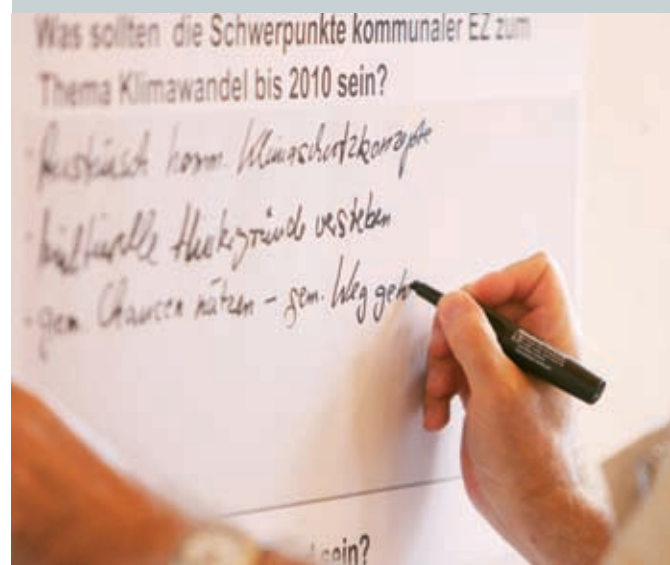 Was sollten die Schwerpunkte kommunaler EZ zum
Thema Klimawandel bis 2010 sein?
- Austausch komm. Klimaschutzkonzepte
- kulturelle Hintergründe verstehen
- gem. Chancen nützen - gem. Weg gehe
sein?